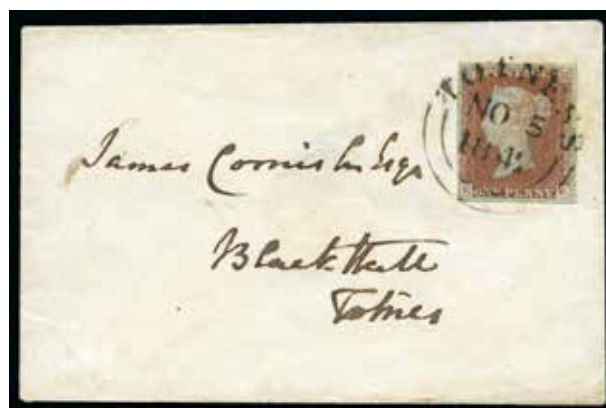 TOTNES
NO 5
184
ONE PENNY
James Cornish Esqr
Black Hall
Totnes